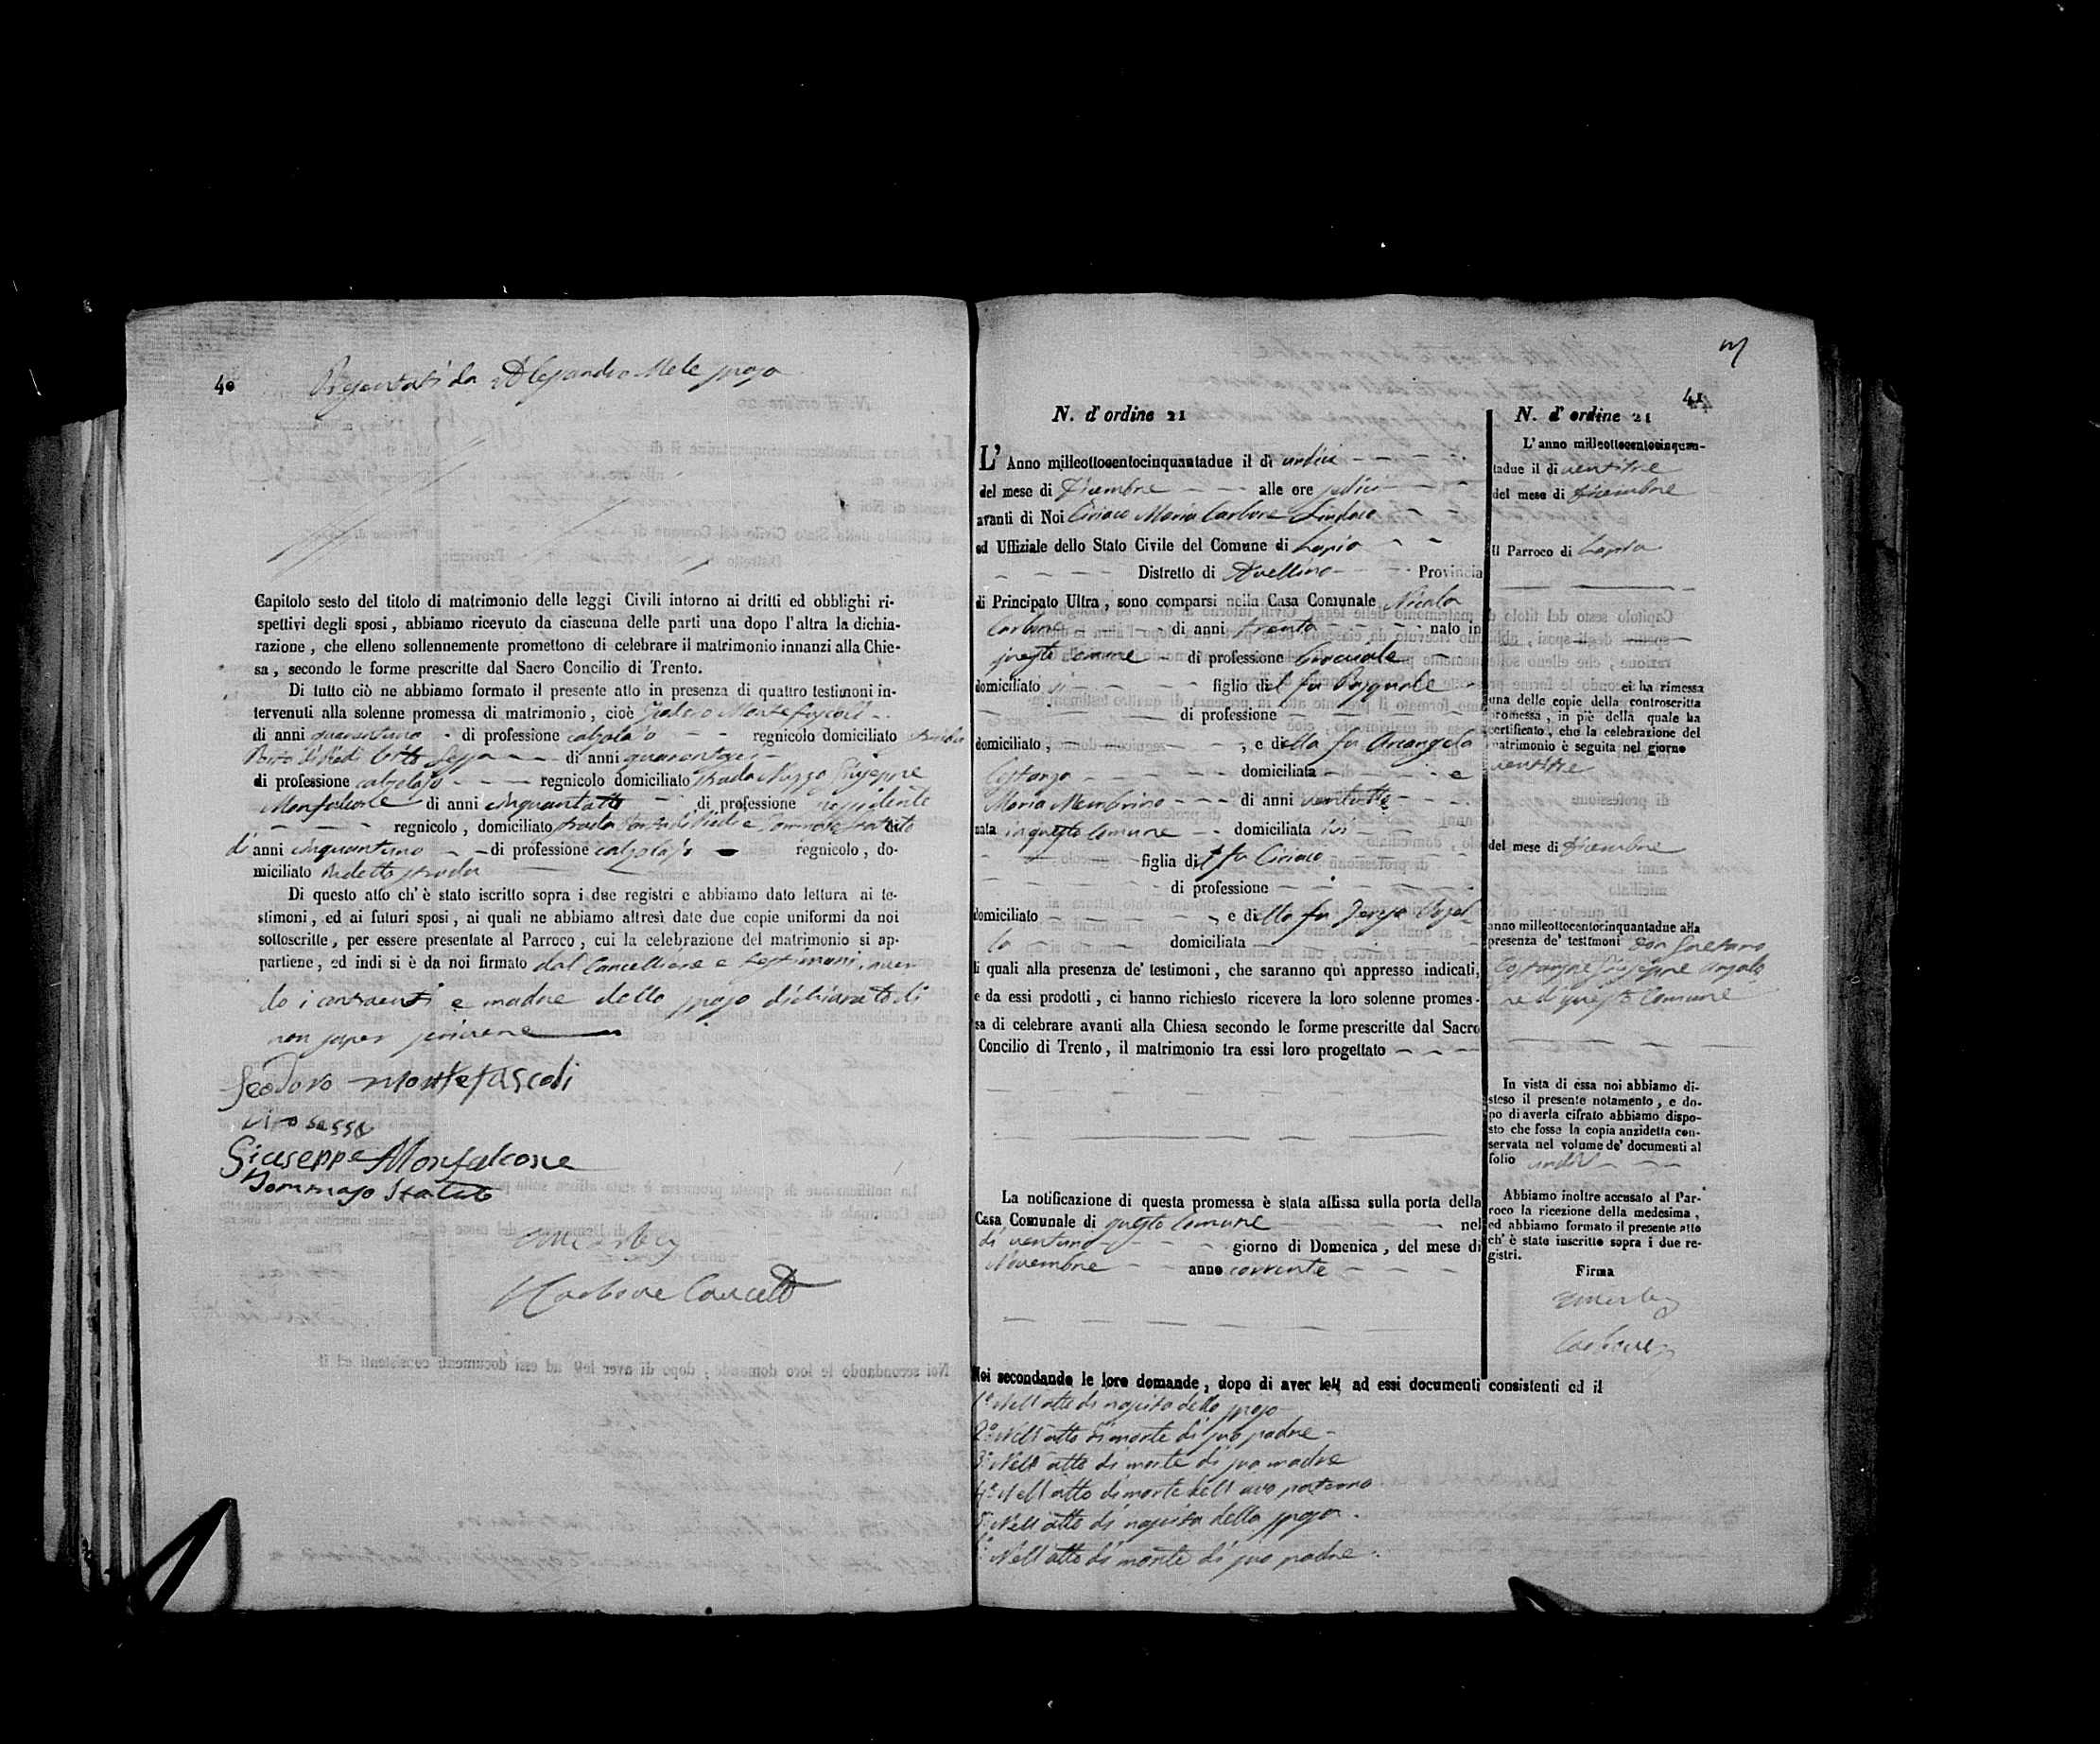 40
Presentati da Alessandro Mele sposo
Capitolo sesto del titolo di matrimonio delle leggi Civili intorno ai dritti ed obblighi ri-
spettivi degli sposi, abbiamo ricevuto da ciascuna delle parti una dopo l'altra la dichia-
razione, che elleno sollennemente promettono di celebrare il matrimonio innanzi alla Chie-
sa, secondo le forme prescritte dal Sacro Concilio di Trento.
Di tutto ciò ne abbiamo formato il presente atto in presenza di quattro testimoni in-
tervenuti alla solenne promessa di matrimonio, cioè Teodoro Montefuscoli
di anni quarantuno di professione calzolajo regnicolo domiciliato strada
di anni
di professione calzolajo regnicolo domiciliato strada Giuseppe
Monfalcone di anni cinquantotto di professione
regnicolo, domiciliato strada
di anni cinquantuno di professione calzolajo regnicolo, do-
miciliato detta strada
Di questo atto ch'è stato iscritto sopra i due registri e abbiamo dato lettura ai te-
stimoni, ed ai futuri sposi, ai quali ne abbiamo altresì date due copie uniformi da noi
sottoscritte, per essere presentate al Parroco, cui la celebrazione del matrimonio si ap-
partiene, ed indi si è da noi firmato dal Cancelliere e testimoni, aven
do i contraenti e madre dello sposo dichiarato di
non saper scrivere
Teodoro Montefuscoli
Ciro Sessa
Giuseppe Monfalcone
Tommaso Statuto
Carbone Cancell
41
N. d'ordine 21
L'Anno milleottocentocinquantadue il dì undici
del mese di Dicembre alle ore sedici
avanti di Noi Ciriaco Maria Carbone Sindaco
ed Uffiziale dello Stato Civile del Comune di Lapio
Distretto di Avellino Provincia
di Principato Ultra, sono comparsi nella Casa Comunale Nicola
Carbone di anni trenta nato in
questo Comune di professione
domiciliato ivi figlio del fu Pasquale
di professione
domiciliato, e della fu Arcangela
Costanzo domiciliata e
Maria Membrino di anni ventotto
nata in questo Comune domiciliata ivi
figlia del fu Ciriaco
di professione
domiciliato, e della fu Teresa
domiciliata
li quali alla presenza de' testimoni, che saranno quì appresso indicati,
e da essi prodotti, ci hanno richiesto ricevere la loro solenne promes-
sa di celebrare avanti alla Chiesa secondo le forme prescritte dal Sacro
Concilio di Trento, il matrimonio tra essi loro progettato
La notificazione di questa promessa è stata affissa sulla porta della
Casa Comunale di questo Comune nel
dì ventuno giorno di Domenica, del mese di
Novembre anno corrente
Noi secondando le loro domande, dopo di aver letti ad essi documenti consistenti ed il
1° Nell'atto di nascita dello sposo
2° Nell'atto di morte di suo padre
3° Nell'atto di morte di sua madre
4° Nell'atto di morte dell'avo paterno
5° Nell'atto di nascita della sposa
6° Nell'atto di morte di suo padre
N. d'ordine 21
L'anno milleottocentocinquan-
tadue il dì ventitre
del mese di Dicembre
Il Parroco di Lapio
ci ha rimessa
una delle copie della controscritta
promessa, in piè della quale ha
certificato, che la celebrazione del
matrimonio è seguita nel giorno
ventitre
del mese di Dicembre
anno milleottocentocinquantadue alla
presenza de' testimoni Don Gaetano
Costanzo e Giuseppe
di questo Comune
In vista di essa noi abbiamo di-
steso il presente notamento, e do-
po di averla cifrato abbiamo dispo-
sto che fosse la copia anzidetta con-
servata nel volume de' documenti al
folio
Abbiamo inoltre accusato al Par-
roco la ricezione della medesima,
ed abbiamo formato il presente atto
ch'è stato inscritto sopra i due re-
gistri.
Firma
Carbone